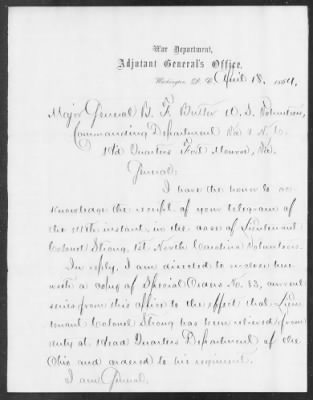 War Department,
Adjutant General's Office,
Washington, D. C. April 18, 1864.
Major General B. F. Butler U. S. Volunteers,
Commanding Department Va. & N. C.
Head Quarters Fort Monroe, Va.
General:
I have the honor to ac-
knowledge the receipt of your telegram of
the instant, in the case of Lieutenant
Colonel Strong, 1st North Carolina Volunteers.
In reply, I am directed to inclose here-
with a copy of Special Orders No. 53, current
series from this office to the effect that Lieu-
tenant Colonel Strong has been relieved from
duty at Head Quarters Department of the
Ohio and ordered to his regiment.
I am General,